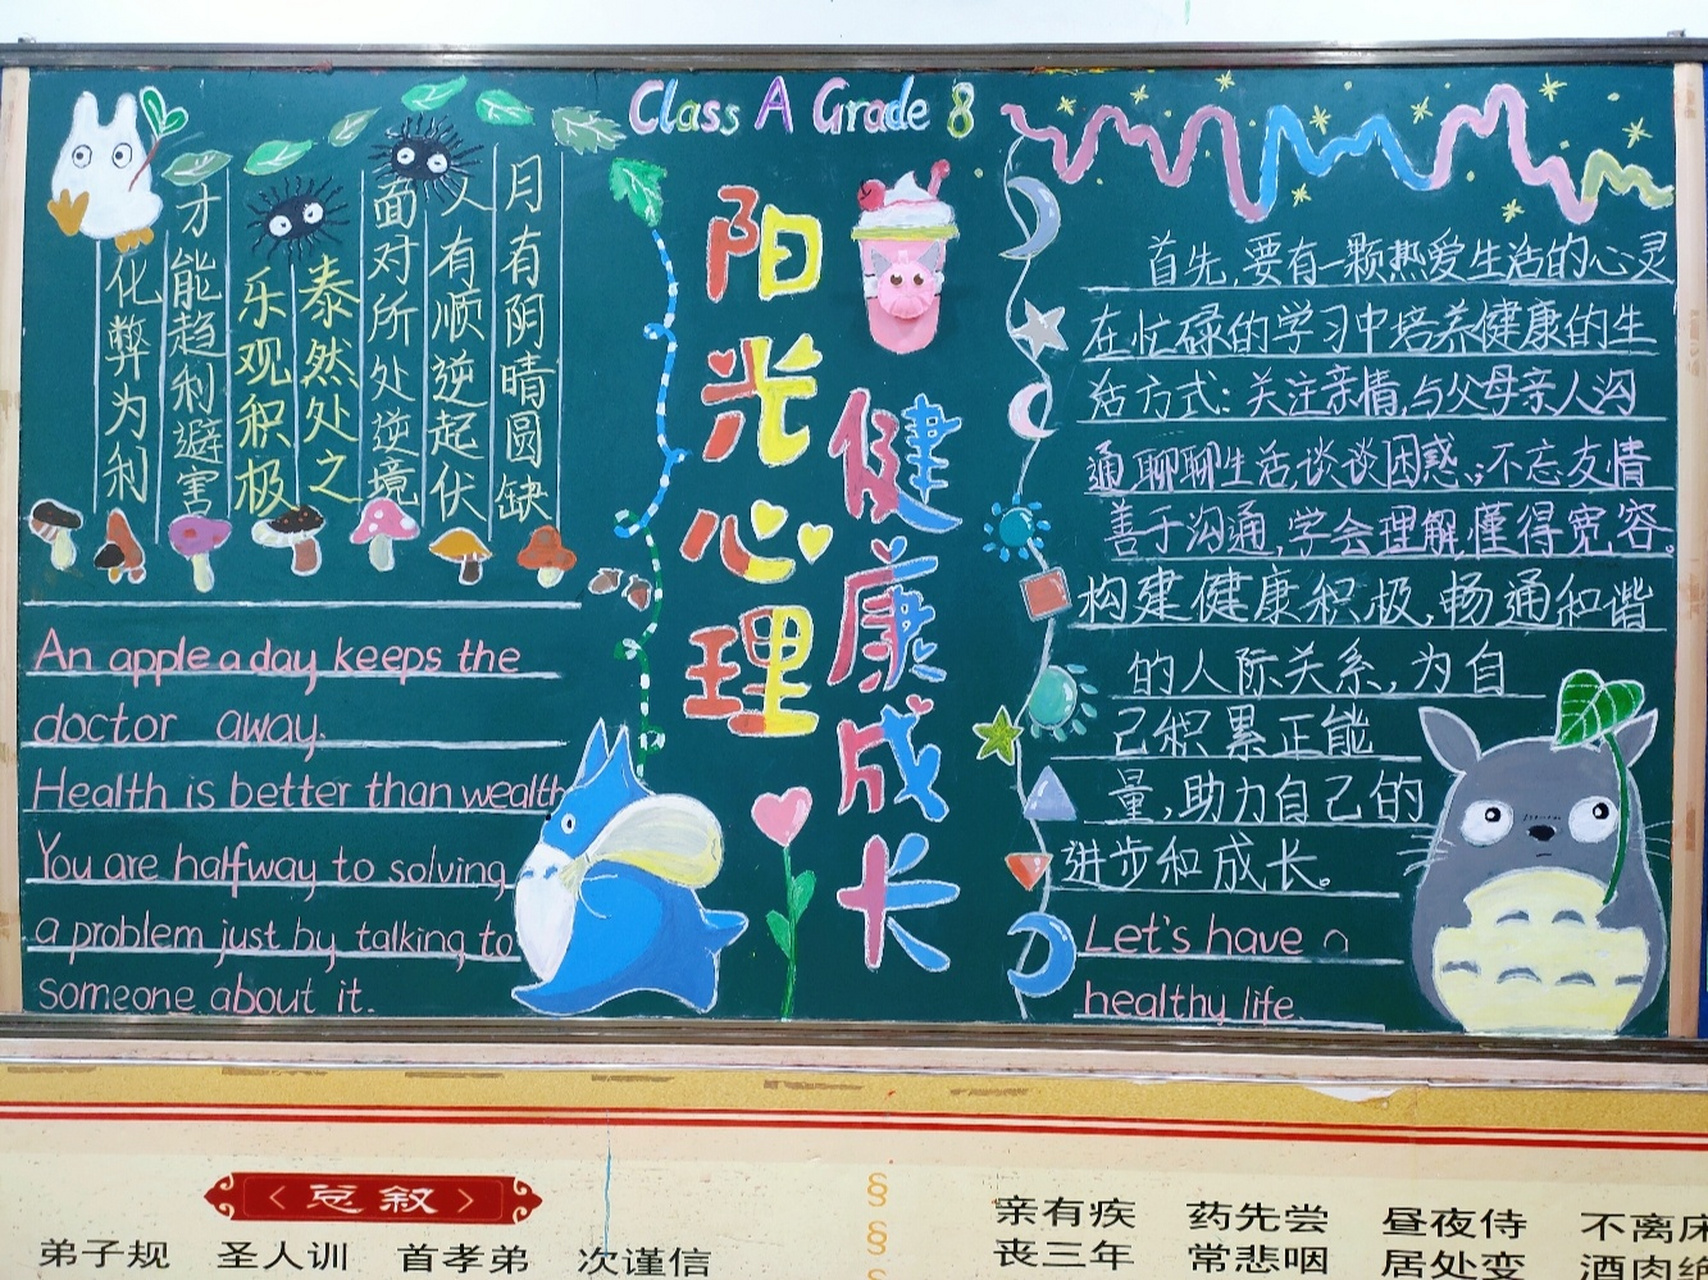 Class A Grade 8
月有阴晴圆缺
人有顺逆起伏
面对所处逆境
泰然处之
乐观积极
才能趋利避害
化弊为利
An apple a day keeps the
doctor away.
Health is better than wealth
You are halfway to solving
a problem just by talking to
someone about it.
阳光心理
健康成长
首先,要有一颗热爱生活的心灵
在忙碌的学习中培养健康的生
活方式:关注亲情,与父母亲人沟
通聊聊生活,谈谈困惑;不忘友情
善于沟通,学会理解,懂得宽容。
构建健康积极,畅通和谐
的人际关系,为自
己积累正能
量,助力自己的
进步和成长。
Let's have a
healthy life.
〈总叙〉
弟子规 圣人训 首孝弟 次谨信
§
§
亲有疾 药先尝 昼夜侍 不离床
丧三年 常悲咽 居处变 酒肉绝